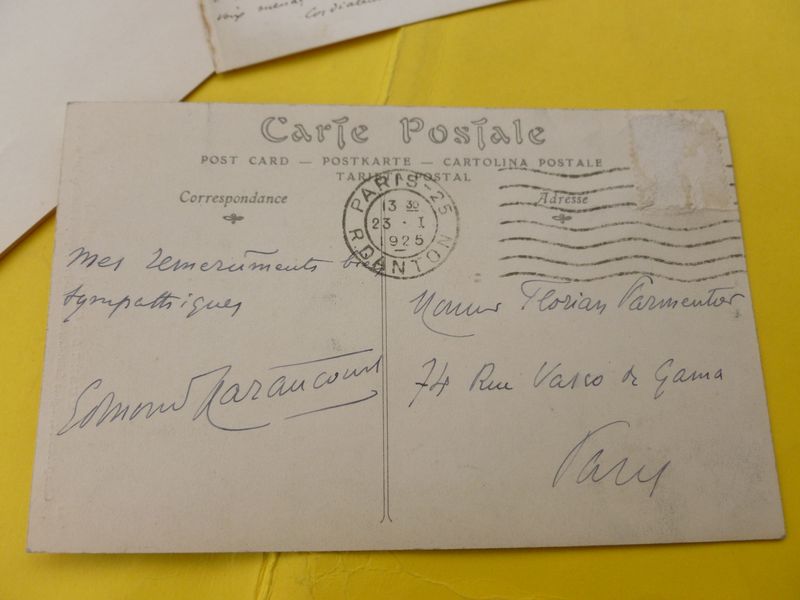 Cordiale
Carte Postale
POST CARD — POSTKARTE — CARTOLINA POSTALE
TARJETA POSTAL
Correspondance
Adresse
PARIS-25
13 30
23 · I
1925
R. DANTON
Mes remerciments bien
sympathiques
Edmond Haraucourt
Monsieur Florian Parmentier
74 Rue Vasco de Gama
Paris